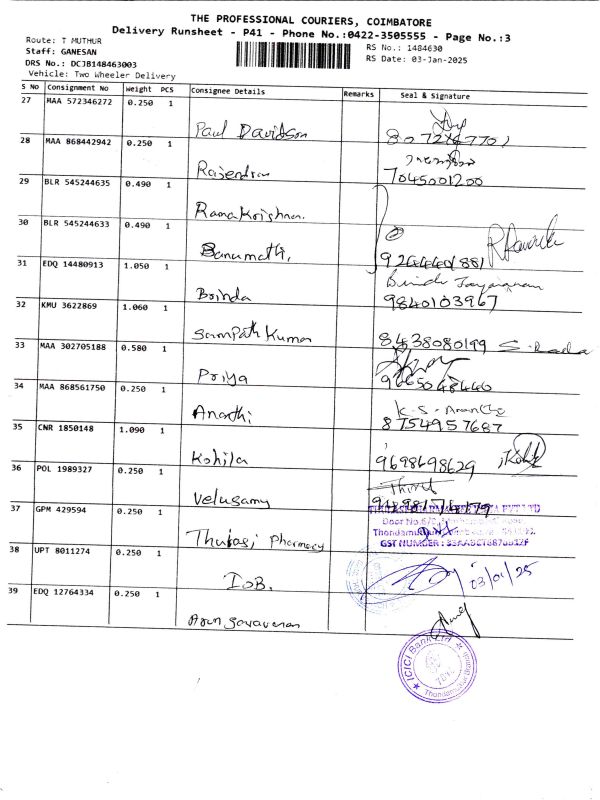 THE PROFESSIONAL COURIERS, COIMBATORE
Delivery Runsheet - P41 - Phone No.:0422-3505555 - Page No.:3
Route: T MUTHUR
RS No.: 1484630
Staff: GANESAN
RS Date: 03-Jan-2025
DRS No.: DCJB148463003
Vehicle: Two Wheeler Delivery
S No Consignment No Weight PCS Consignee Details Remarks Seal & Signature
27 MAA 572346272 0.250 1
Paul Davidson
28 MAA 868442942 0.250 1
Rajendran
7045001200
29 BLR 545244635 0.490 1
Ramakrishnan.
30 BLR 545244633 0.490 1
Banumathi,
31 EDQ 14480913 1.050 1
Brinda
9840103967
32 KMU 3622869 1.060 1
Sampath Kumar
8438080199
33 MAA 302705188 0.580 1
Priya
34 MAA 868561750 0.250 1
Ananthi
8754957687
35 CNR 1850148 1.090 1
Kohila
9698698629
36 POL 1989327 0.250 1
Velusamy
37 GPM 429594 0.250 1
Thulasi Pharmacy
38 UPT 8011274 0.250 1
IOB.
03/01/25
39 EDQ 12764334 0.250 1
Arun Saravanan
ICICI Bank Ltd